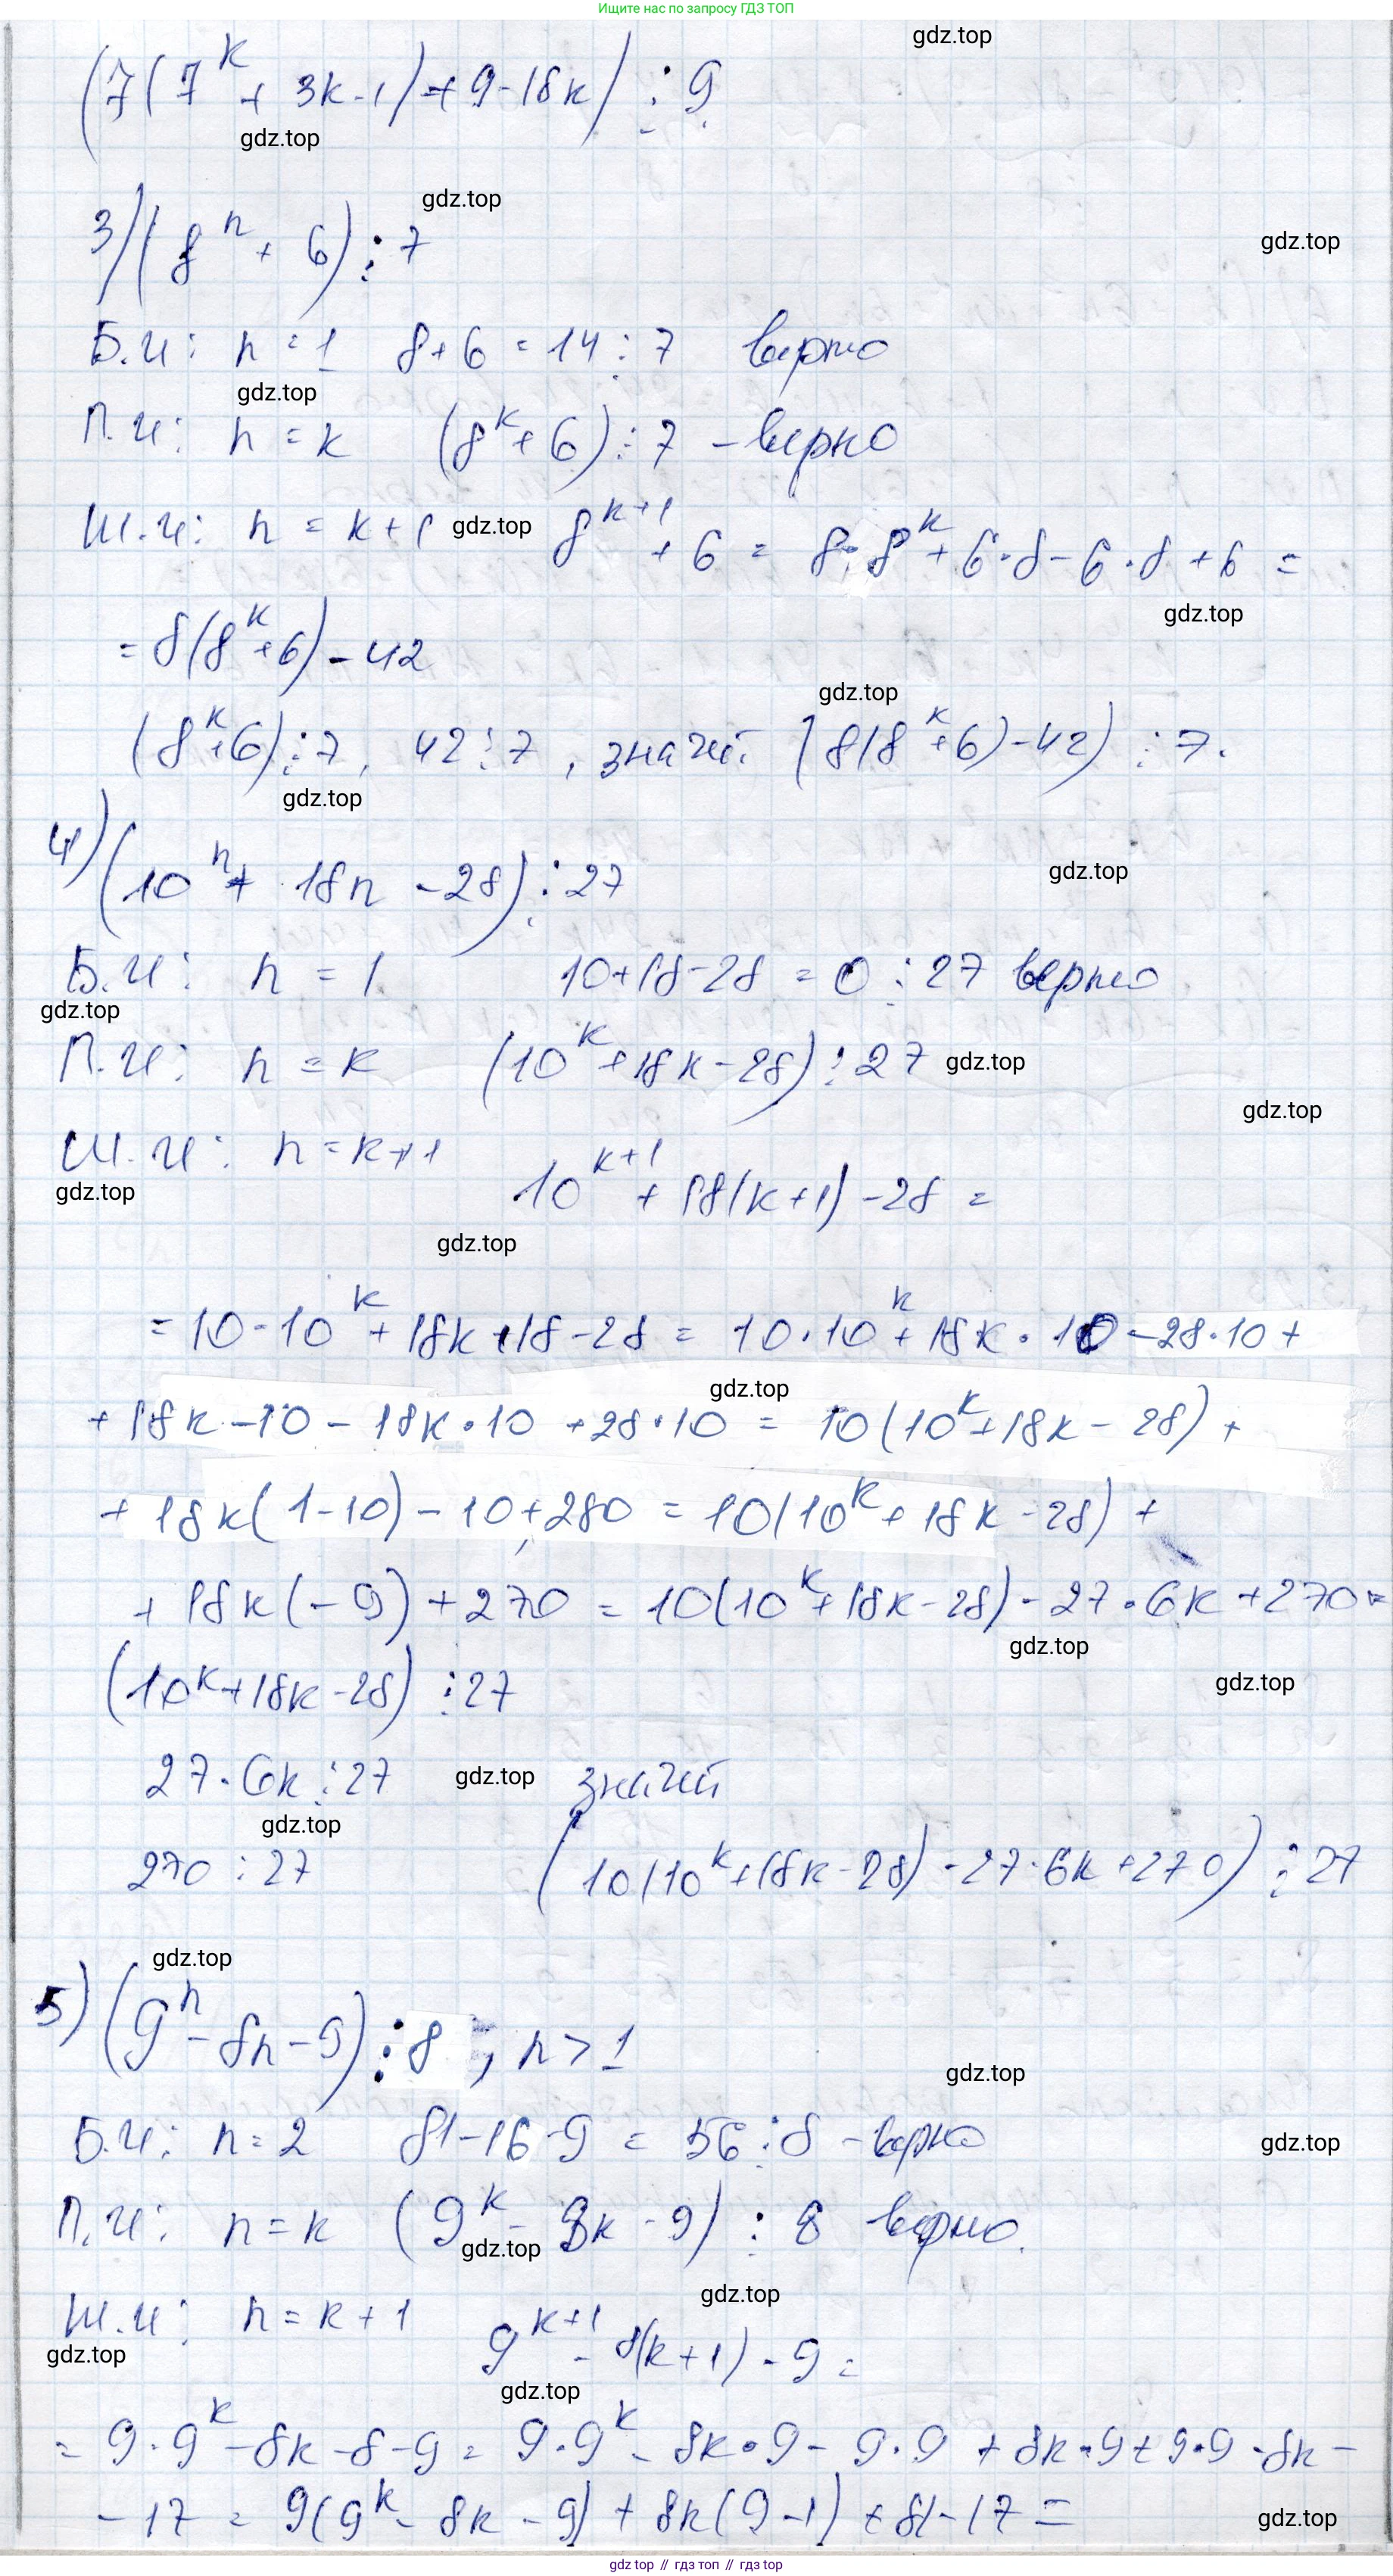 Ищите нас по запросу ГДЗ ТОП
gdz.top
(7(7^k + 3k-1)+9-18k) ⋮ 9
gdz.top
gdz.top
3) (8^n + 6) ⋮ 7
gdz.top
Б.И: n=1 8+6=14 ⋮ 7 верно
gdz.top
П.И: n=k (8^k+6) ⋮ 7 - верно
Ш.И: n=k+1 gdz.top 8^(k+1) + 6 = 8·8^k + 6·8 - 6·8 + 6 =
gdz.top
= 8(8^k+6) - 42
gdz.top
(8^k+6) ⋮ 7, 42 ⋮ 7, значит (8(8^k+6)-42) ⋮ 7.
gdz.top
4) (10^n + 18n - 28) ⋮ 27
gdz.top
Б.И: n=1 10+18-28=0 ⋮ 27 верно
gdz.top
П.И: n=k (10^k+18k-28) ⋮ 27 gdz.top
gdz.top
Ш.И: n=k+1 10^(k+1) + 18(k+1) - 28 =
gdz.top
gdz.top
= 10·10^k + 18k + 18 - 28 = 10·10^k + 18k·10 - 28·10 +
gdz.top
+ 18k - 10 - 18k·10 + 28·10 = 10(10^k+18k-28) +
+ 18k(1-10) - 10 + 280 = 10(10^k+18k-28) +
+ 18k(-9) + 270 = 10(10^k+18k-28) - 27·6k + 270 =
gdz.top
(10^k+18k-28) ⋮ 27
gdz.top
27·6k ⋮ 27 gdz.top значит
gdz.top
270 ⋮ 27 (10(10^k+18k-28) - 27·6k + 270) ⋮ 27
gdz.top
5) (9^n - 8n - 9) ⋮ 8, n > 1
gdz.top
Б.И: n=2 81-16-9 = 56 ⋮ 8 - верно
gdz.top
П.И: n=k (9^k - 8k - 9) ⋮ 8 верно.
gdz.top
gdz.top
Ш.И: n=k+1 9^(k+1) - 8(k+1) - 9 =
gdz.top
gdz.top
= 9·9^k - 8k - 8 - 9 = 9·9^k - 8k·9 - 9·9 + 8k·9 + 9·9 - 8k -
- 17 = 9(9^k - 8k - 9) + 8k(9-1) + 81 - 17 =
gdz.top
gdz top // гдз топ // gdz top